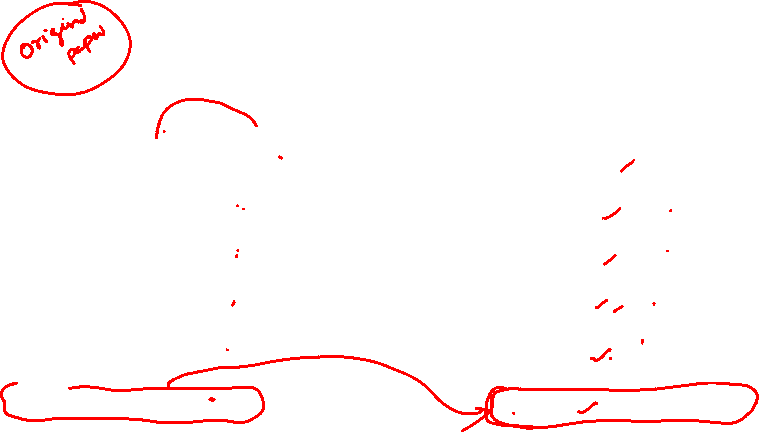 Original
paper